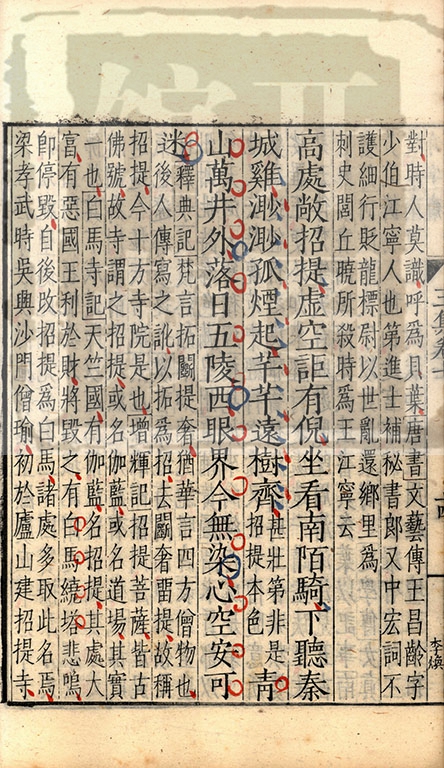 對時人莫識呼爲貝葉唐書文藝傳王昌齡字
少伯江寧人也第進士補秘書郎又中宏詞不
護細行貶龍標尉以世亂還鄉里爲
刺史閭丘曉所殺時爲王江寧云
高處敞招提虛空詎有倪坐看南陌騎下聽秦
城雞渺渺孤煙起芊芊遠樹齊甚壯第非是招提本色青
山萬井外落日五陵西眼界今無染心空安可
迷釋典記梵言拓鬬提奢猶華言四方僧物也
後人傳寫之訛以拓爲招去鬬奢畱提故稱
招提今十方寺院是也增輝記招提菩薩皆古
佛號故寺謂之招提或名伽藍或名道場其實
一也白馬寺記天竺國有伽藍名招提其處大
富有惡國王利於財將毀之有白馬繞塔悲鳴
卽停毀自後改招提爲白馬諸處多取此名焉
梁孝武時吳興沙門僧瑜初於廬山建招提寺